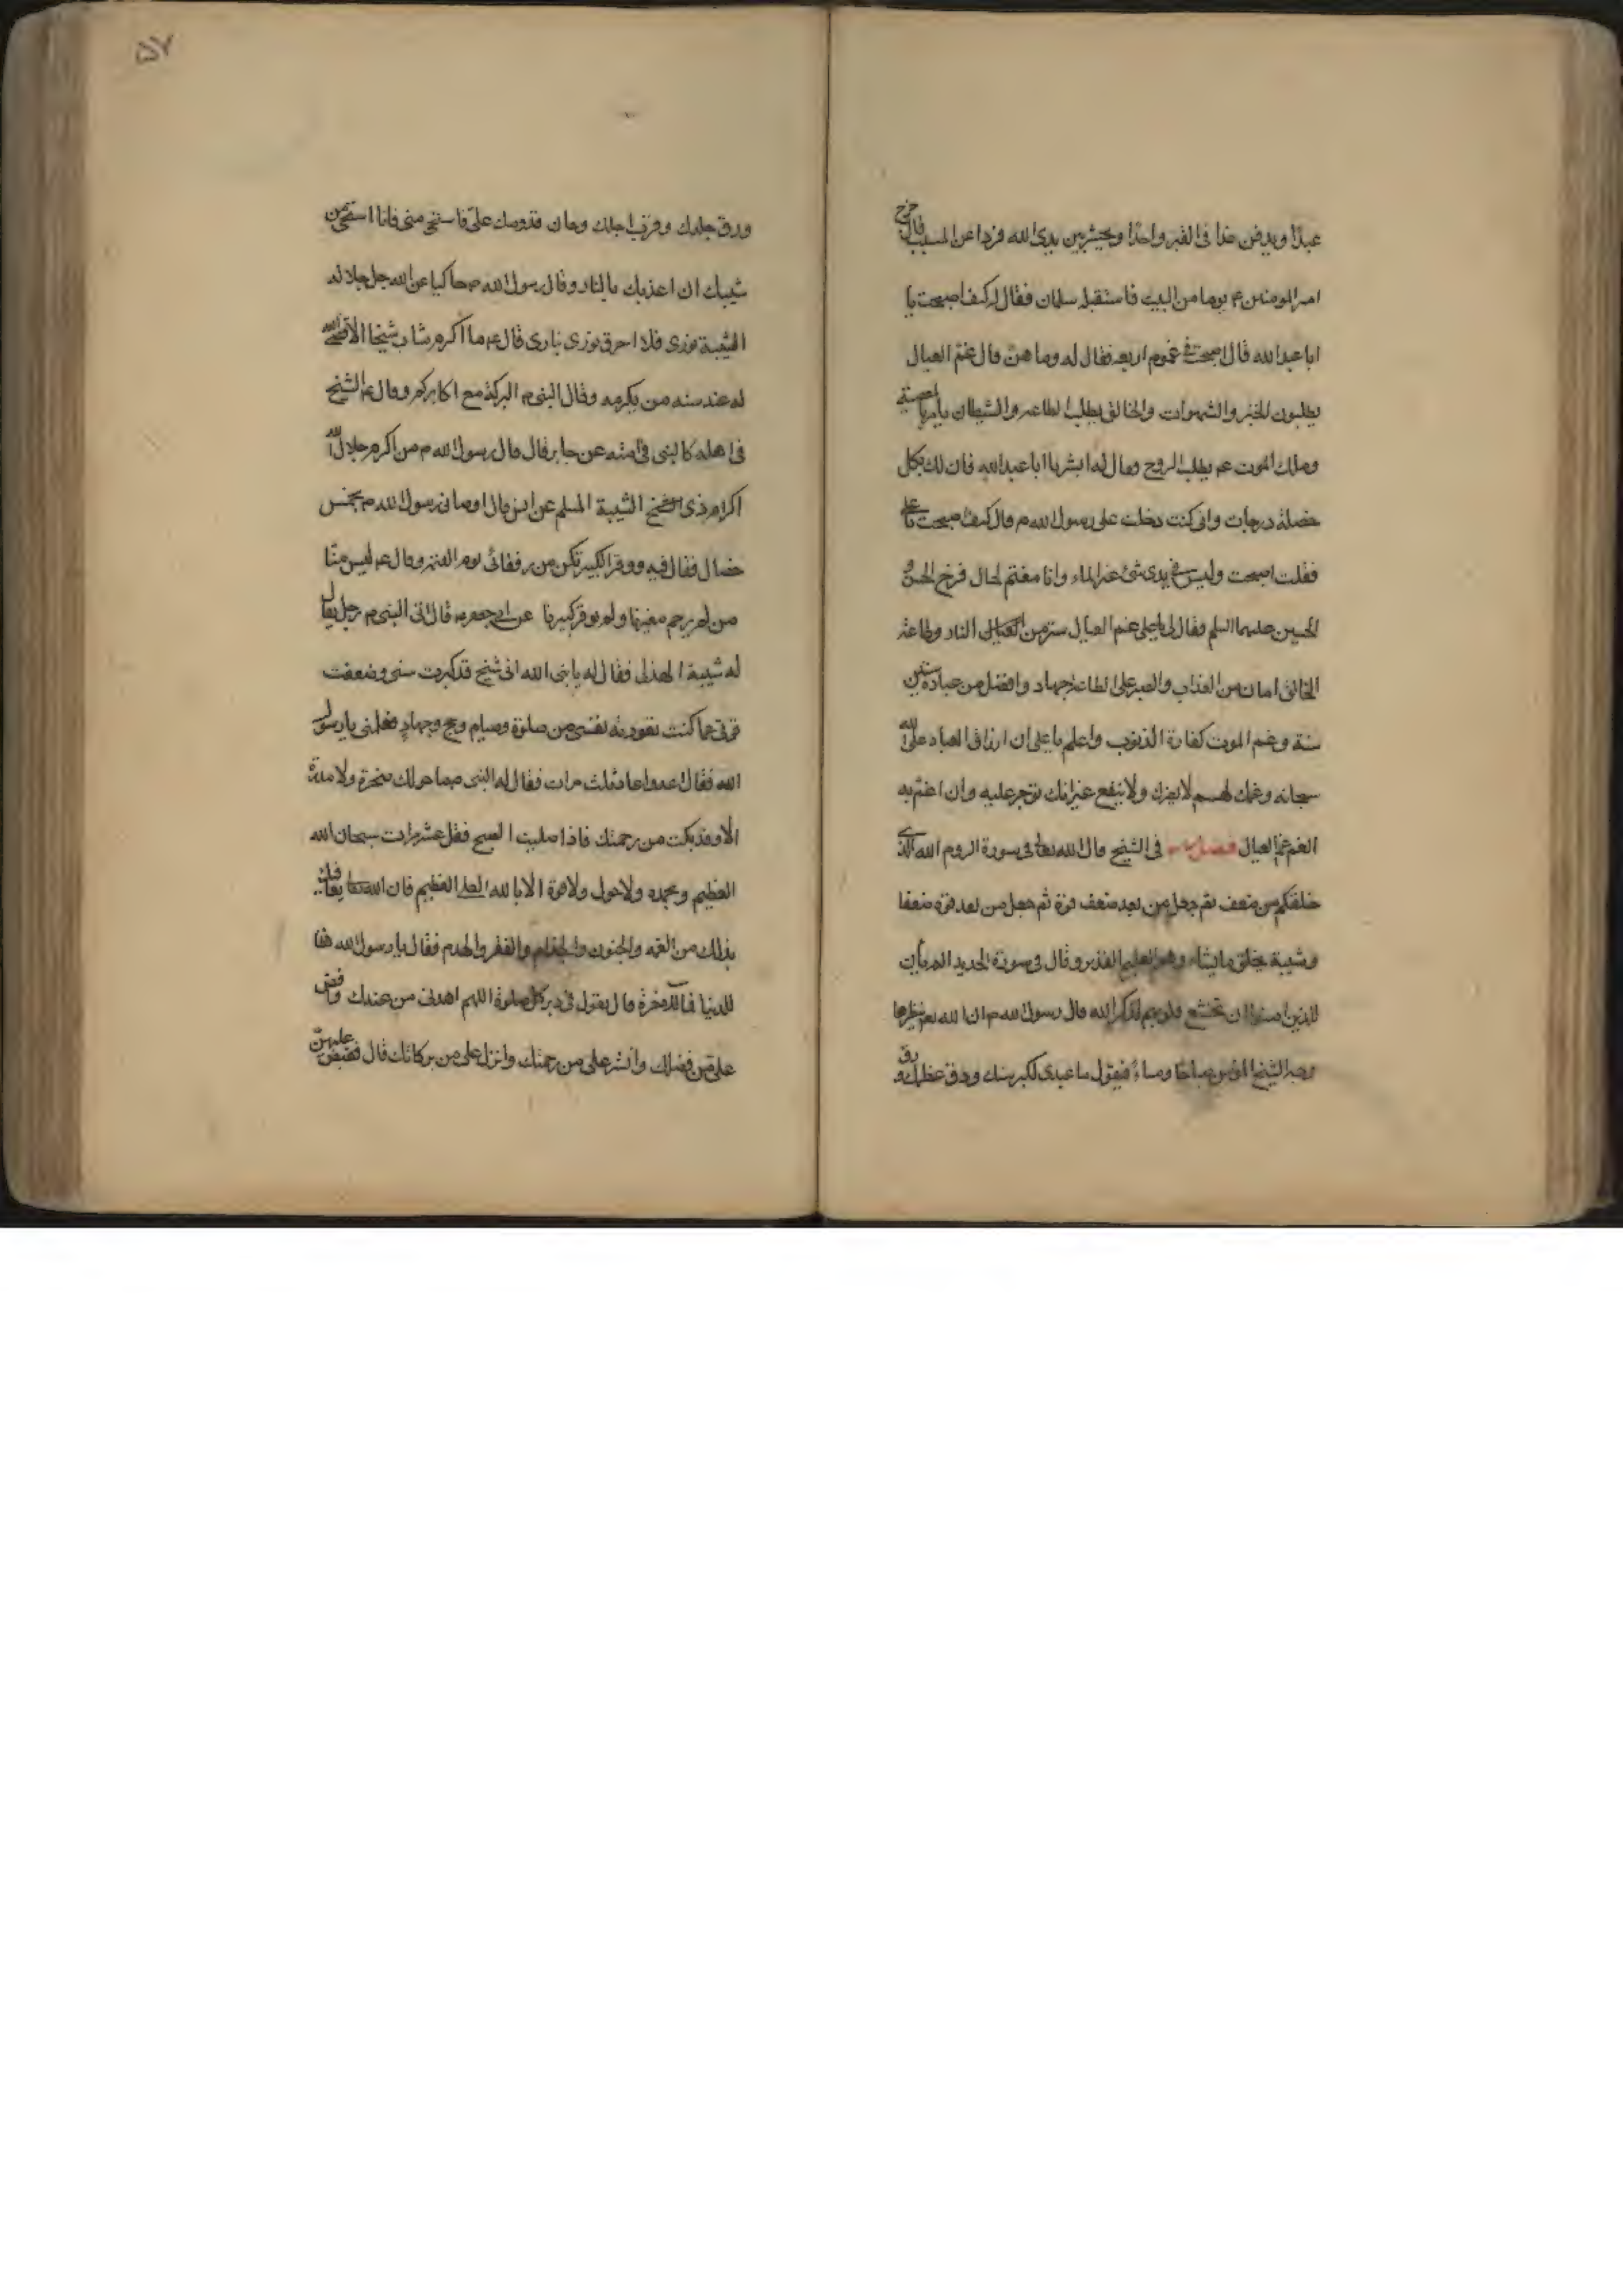 عبدًا ويدفن غدا فى القبر واحدًا ويحشر بين يدى الله فردا عن المسيب قال خرج
امير المومنين ع يوما من البيت فاستقبله سلمان فقال له كيف اصبحت يا
ابا عبد الله قال اصبحت فى غموم اربعه فقال له وما هن قال غم العيال
يطلبون الخبز والشهوات والخالق يطلب الطاعه والشيطان يامر بالمعصية
وملك الموت ع يطلب الروح فقال له ابشر يا ابا عبد الله فان لك بكل
خصلة درجات وانى كنت دخلت على رسول الله ص قال كيف اصبحت يا على
فقلت اصبحت وليس فى يدى شئ غير الماء وانا مغتم لحال فرخى الحسن و
الحسين عليهما السلم فقال لى يا على غم العيال ستر من النار وطاعة
الخالق امان من العذاب والصبر على الطاعة جهاد وافضل من عبادة ستين
سنة وغم الموت كفارة الذنوب واعلم يا على ان ارزاق العباد على الله
سبحانه وغمك لهم لا يضرك ولا ينفع غير انك توجر عليه وان اغتم به
الغم غم العيال فصل فى الشيخ قال الله تعالى فى سورة الروم الله الذى
خلقكم من ضعف ثم جعل من بعد ضعف قوة ثم جعل من بعد قوة ضعفا
وشيبة يخلق ما يشاء وهو العليم القدير وقال فى سورة الحديد الم يأن
للذين امنوا ان تخشع قلوبهم لذكر الله قال رسول الله ص ان الله تعالى ينظر فى
وجه الشيخ المؤمن صباحًا ومساءً فيقول يا عبدى كبر سنك ودق عظمك و رق
ورق جلدك وقرب اجلك وحان قدومك على فاستحى منى فانا استحى من
شيبك ان اعذبك بالنار وقال رسول الله ص حاكيا عن الله جل جلاله
الشيبة نورى فلا احرق نورى بنارى قال ع ما اكرم شاب شيخا الا قضى الله
له عند سنه من يكرمه وقال النبى ص البركة مع اكابركم وقال ع الشيخ
فى اهله كالنبى فى امته عن جابر قال قال رسول الله ص من اكرم جلال الله
اكرام ذى الشيبة المسلم عن انس قال اوصانى رسول الله ص بخمس
خصال فقال فيه ووقر الكبير تكن من رفقائى يوم القيمة وقال ع ليس منا
من لم يرحم صغيرنا ولم يوقر كبيرنا عن ابى جعفر ع قال اتى النبى ص رجل يقال
له شيبة الهذلى فقال له يا نبى الله انى شيخ قد كبرت سنى وضعفت
قوتى عما كنت تعودته نفسى من صلوة وصيام وحج وجهاد فعلمنى يا رسول
الله فقال اعدها فاعادها ثلث مرات فقال له النبى ص ما حولك شجرة ولا مدرة
الا وقد بكت من رحمتك فاذا صليت الصبح فقل عشر مرات سبحان الله
العظيم وبحمده ولا حول ولا قوة الا بالله العلى العظيم فان الله تعالى يعافيك
بذلك من العمى والجنون والجذام والفقر والهدم فقال يا رسول الله هذا
للدنيا فما للاخرة قال تقول فى دبر كل صلوة اللهم اهدنى من عندك وافض
على من فضلك وانشر على من رحمتك وانزل على من بركاتك قال فقبض عليهن
۵۷